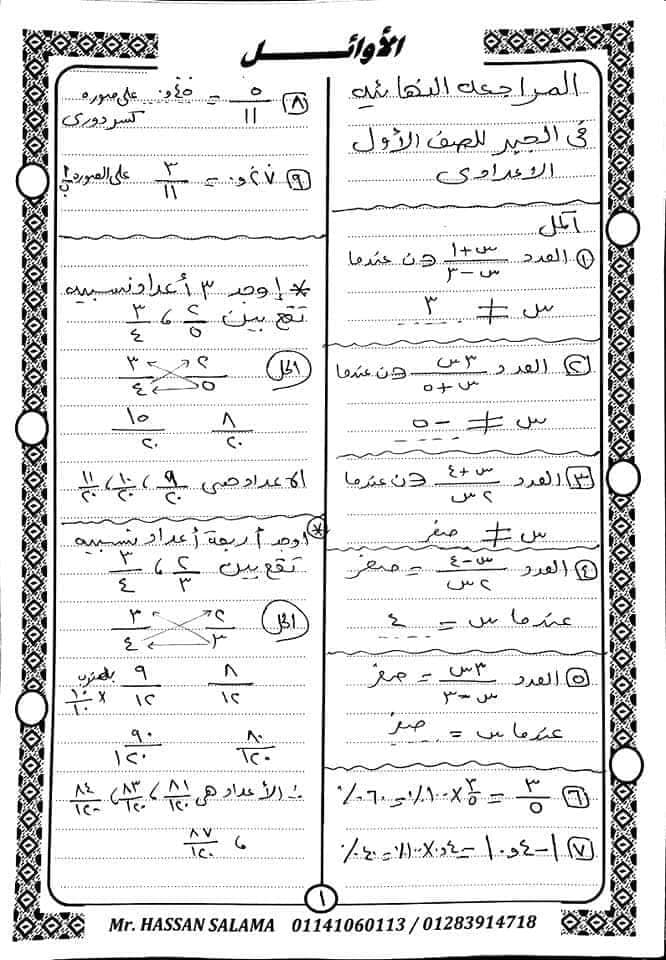 الأوائل
المراجعة النهائية
فى الجبر للصف الأول
الإعدادى
أكمل
① العدد (س+١)/(س-٣) ∈ ن عندما
س ≠ ٣
② العدد ٣س/(س+٥) ∈ ن عندما
س ≠ -٥
③ العدد (س+٤)/٢س ∈ ن عندما
س ≠ صفر
④ العدد (س-٤)/٢س = صفر
عندما س = ٤
⑤ العدد ٣س/(س-٣) = صفر
عندما س = صفر
⑥ ٣/٥ = ٣/٥ × ١٠٠٪ = ٦٠٪
⑦ |-٤,٠| = ٤,٠ × ١٠٠٪ = ٤٠٪
⑧ ٥/١١ = ٤٥,٠ على صورة
كسر دورى
⑨ ٢٧,٠ = ٣/١١ على الصورة أ/ب
* إوجد ٣ أعداد نسبيه
تقع بين ٢/٥ ، ٣/٤
الحل
٢/٥ ٣/٤
٨/٢٠ ١٥/٢٠
الاعداد هى ٩/٢٠ ، ١٠/٢٠ ، ١١/٢٠
* اوجد أربعة أعداد نسبيه
تقع بين ٢/٣ ، ٣/٤
الحل
٢/٣ ٣/٤
٨/١٢ ٩/١٢ بالضرب × ١٠/١٠
٨٠/١٢٠ ٩٠/١٢٠
∴ الأعداد هى ٨١/١٢٠ ، ٨٣/١٢٠ ، ٨٤/١٢٠
، ٨٧/١٢٠
١
Mr. HASSAN SALAMA 01141060113 / 01283914718